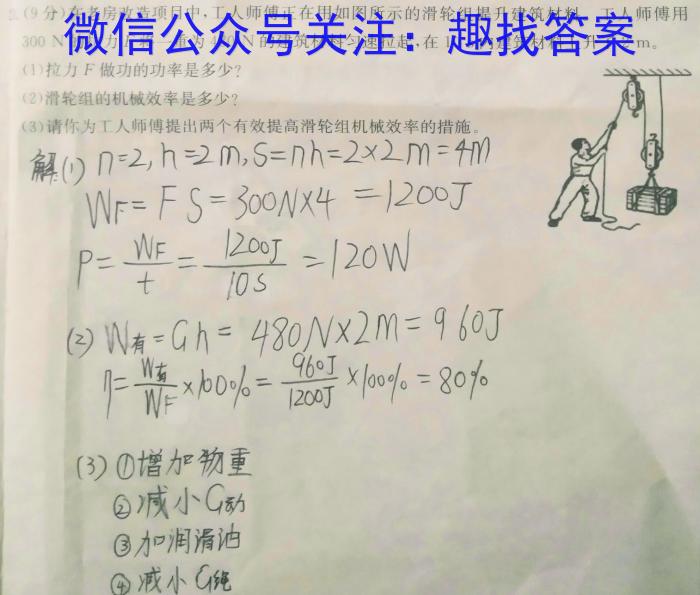 (9分)在老房改造项目中,工人师傅正在用如图所示的滑轮组提升建筑材料。工人师傅用
微信公众号关注:趣找答案
300 N
(1)拉力F做功的功率是多少?
(2)滑轮组的机械效率是多少?
(3)请你为工人师傅提出两个有效提高滑轮组机械效率的措施。
解(1) n=2, h=2m, S=nh=2×2m=4m
WF=FS=300N×4=1200J
P=WF/t=1200J/10s=120W
(2) W有=Gh=480N×2m=960J
η=W有/WF×100%=960J/1200J×100%=80%
(3)①增加物重
②减小G动
③加润滑油
④减小G绳